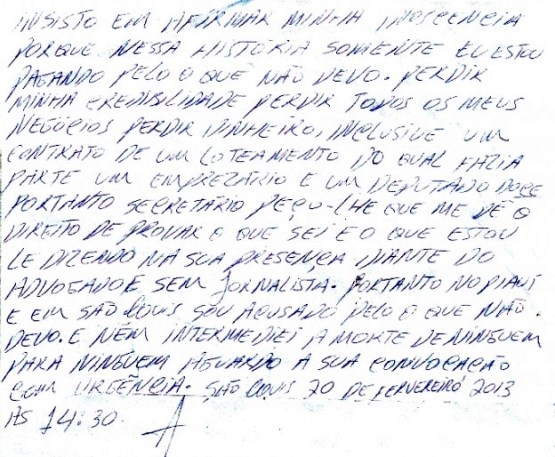 INSISTO EM AFIRMAR MINHA INOSCENCIA
PORQUE NESSA HISTÓRIA SOMENTE EU ESTOU
PAGANDO PELO O QUE NÃO DEVO. PERDIR
MINHA CREDIBILIDADE PERDIR TODOS OS MEUS
NEGÓCIOS PERDIR DINHEIRO, INCLUSIVE UM
CONTRATO DE UM LOTEAMENTO DO QUAL FAZIA
PARTE UM EMPREZÁRIO E UM DEPUTADO
PORTANTO SECRETÁRIO PEÇO-LHE QUE ME DÊ O
DIREITO DE PROVAR O QUE SEI E O QUE ESTOU
LE DIZENDO NA SUA PRESENÇA DIANTE DO
ADVOGADO E SEM JORNALISTA. PORTANTO NO PIAUÍ
E EM SÃO LOUIS SOU ACUSADO PELO O QUE NÃO
DEVO. E NEM INTERMEDIEI A MORTE DE NINGUEM
PARA NINGUEM, AGUARDO A SUA CONVOCAÇÃO
COM URGÊNCIA. SÃO LOUIS 20 DE FERVEREIRO 2013
ÀS 14:30.